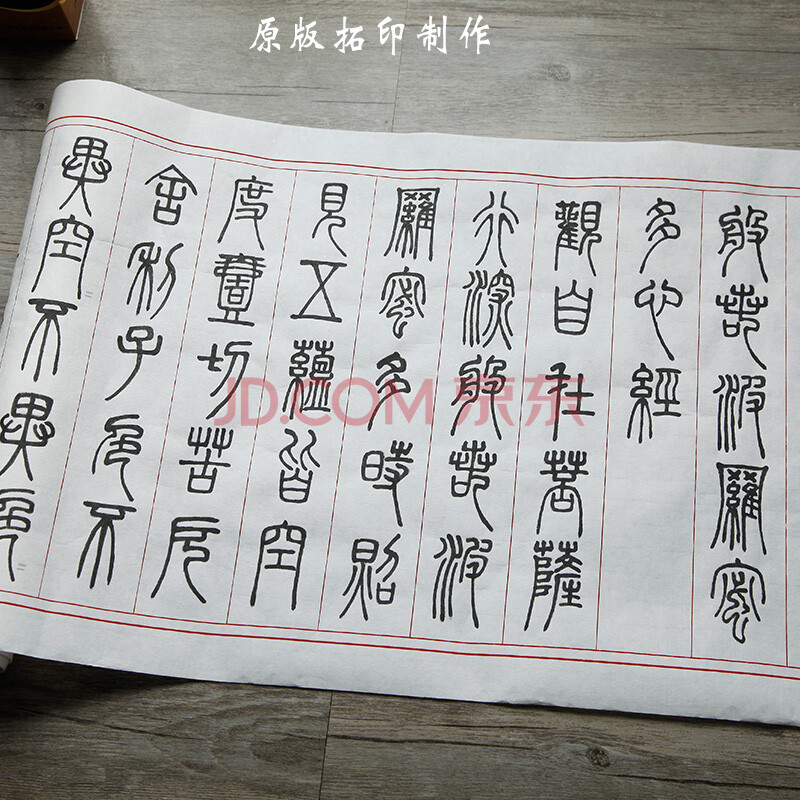 原版拓印制作
般若波羅蜜
多心經
觀自在菩薩
行深般若波
羅蜜多時照
見五蘊皆空
度壹切苦厄
舍利子色不
異空不異色
JD.COM 京东